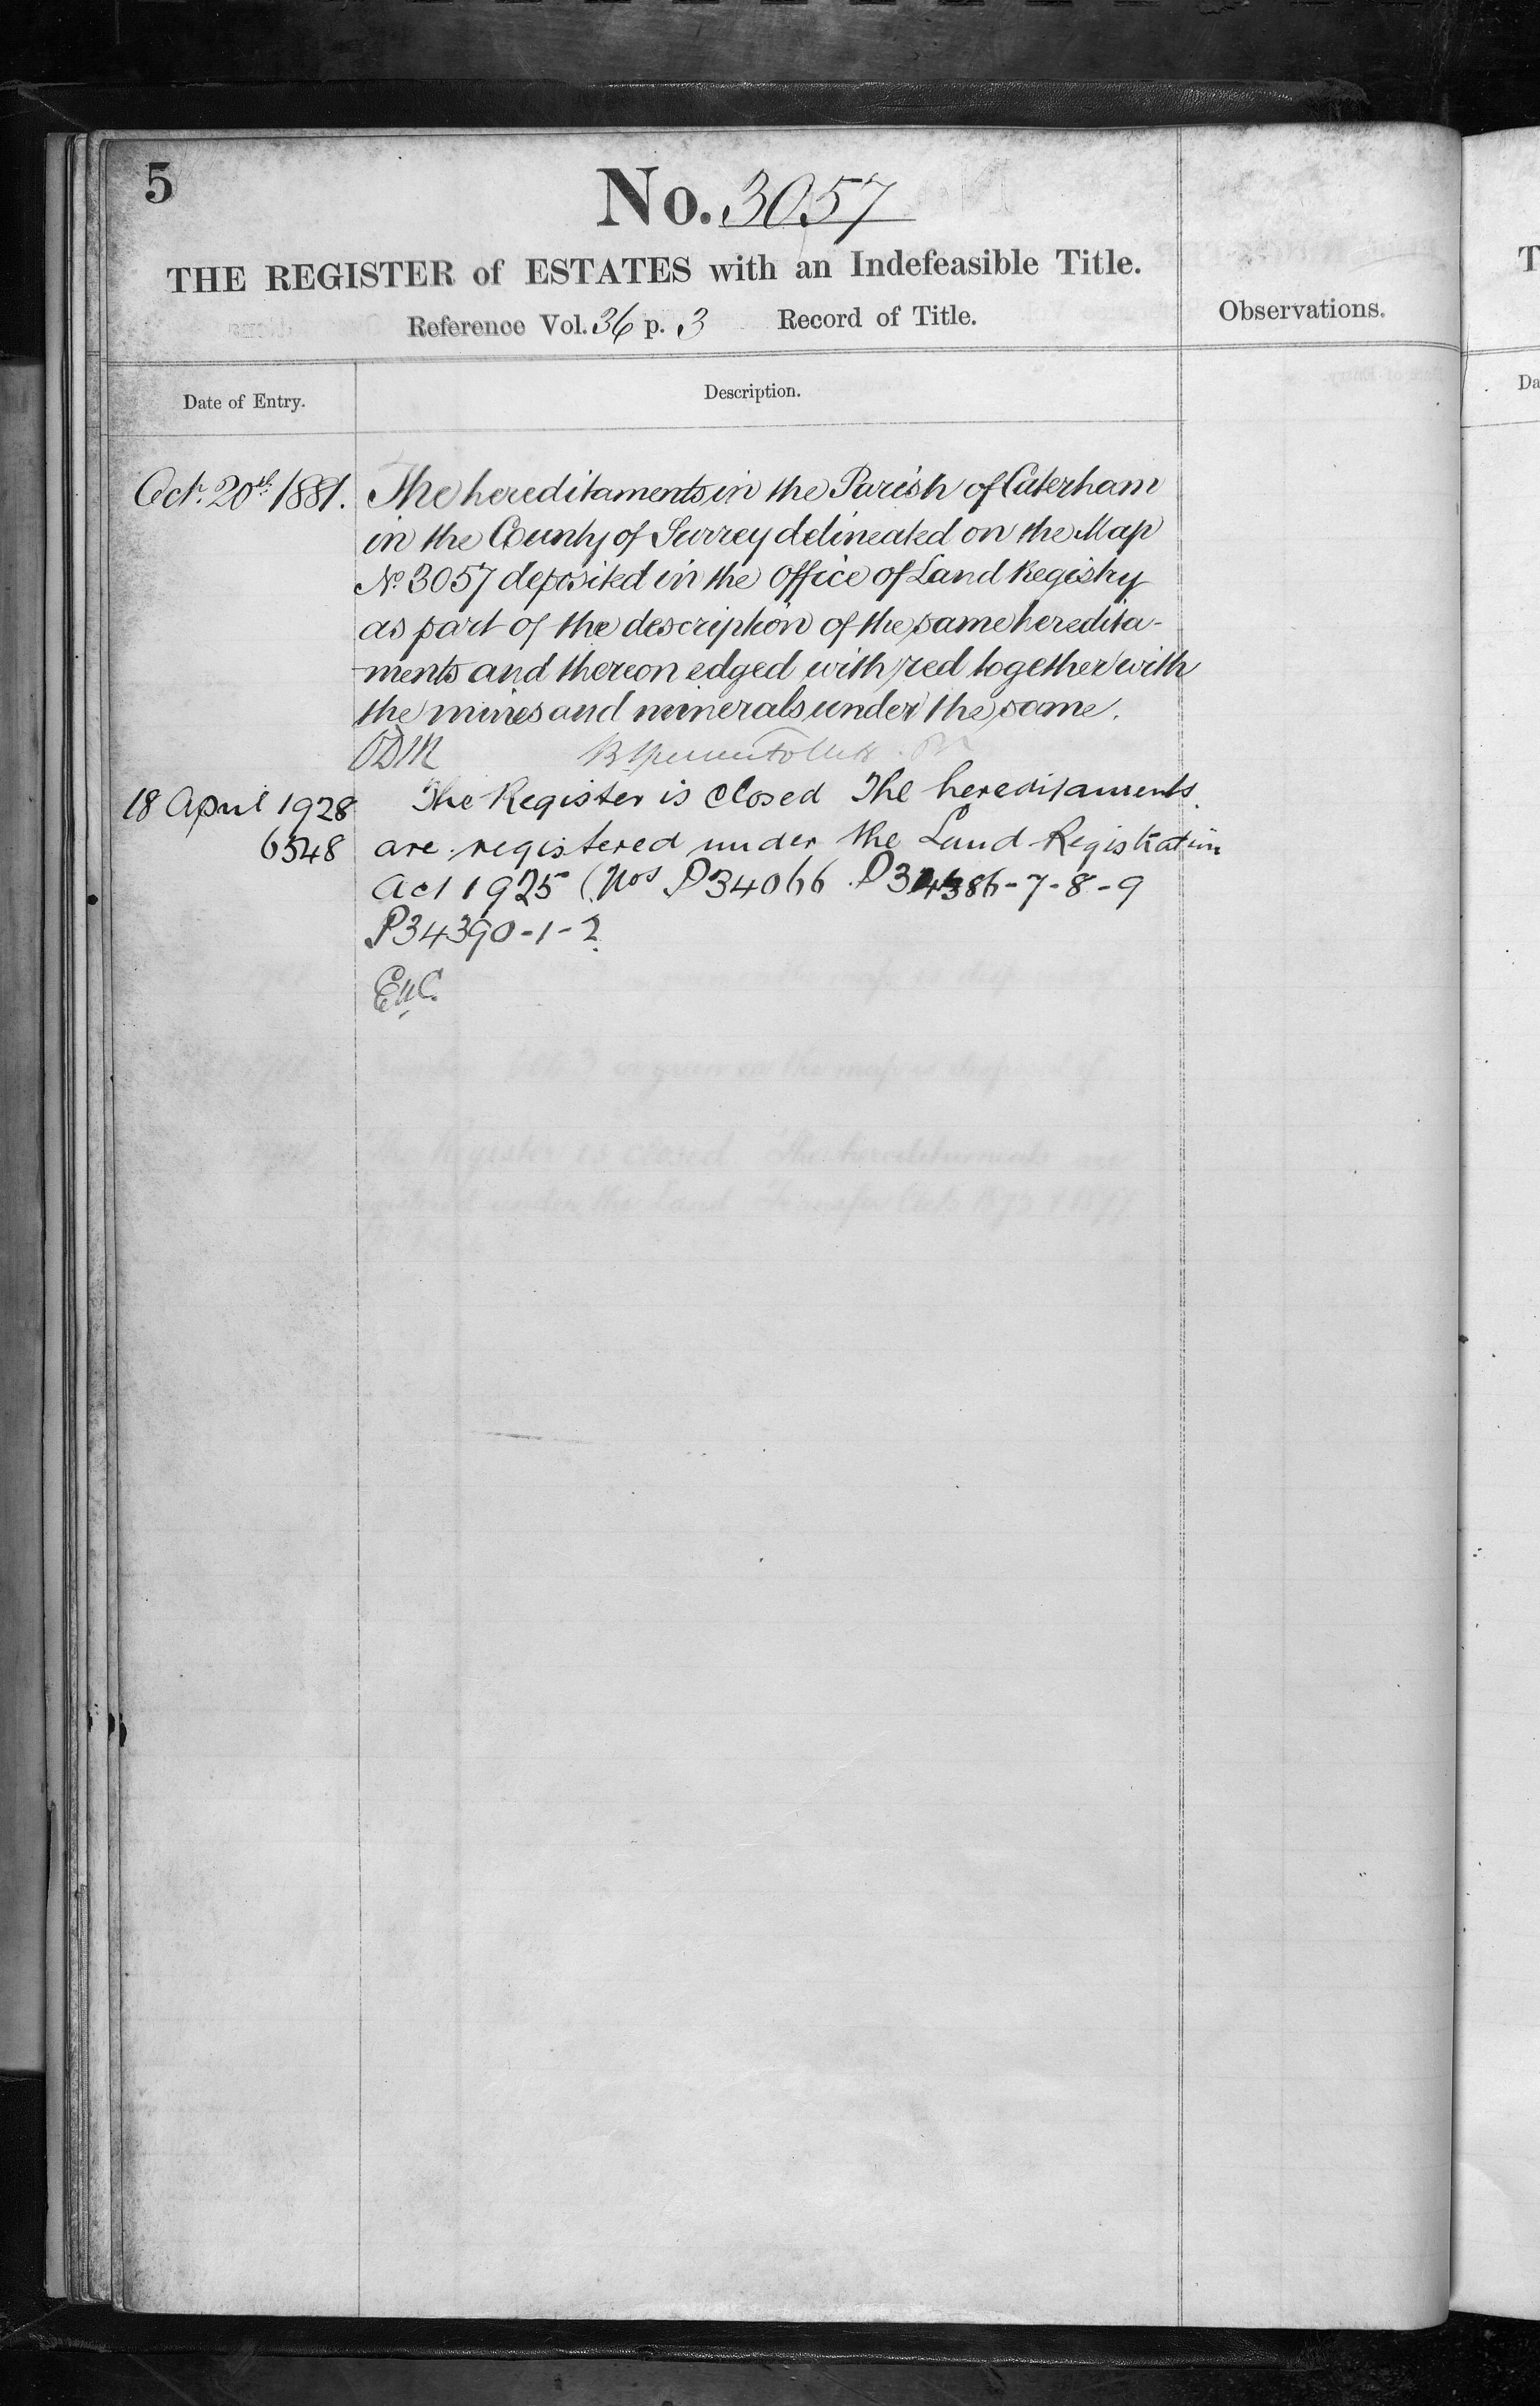 5
No. 3057
THE REGISTER of ESTATES with an Indefeasible Title.
Reference Vol. 36 p. 3 Record of Title.
Observations.
Date of Entry.
Description.
Octr. 20th 1881. The hereditaments in the Parish of Caterham
in the County of Surrey delineated on the Map
No. 3057 deposited in the Office of Land Registry
as part of the description of the same heredita-
ments and thereon edged with red together with
the mines and minerals under the same.
18 April 1928 The Register is closed The hereditaments
6548 are registered under the Land Registration
Act 1925 (Nos P34066 P34386-7-8-9
P34390-1-2
T
Da